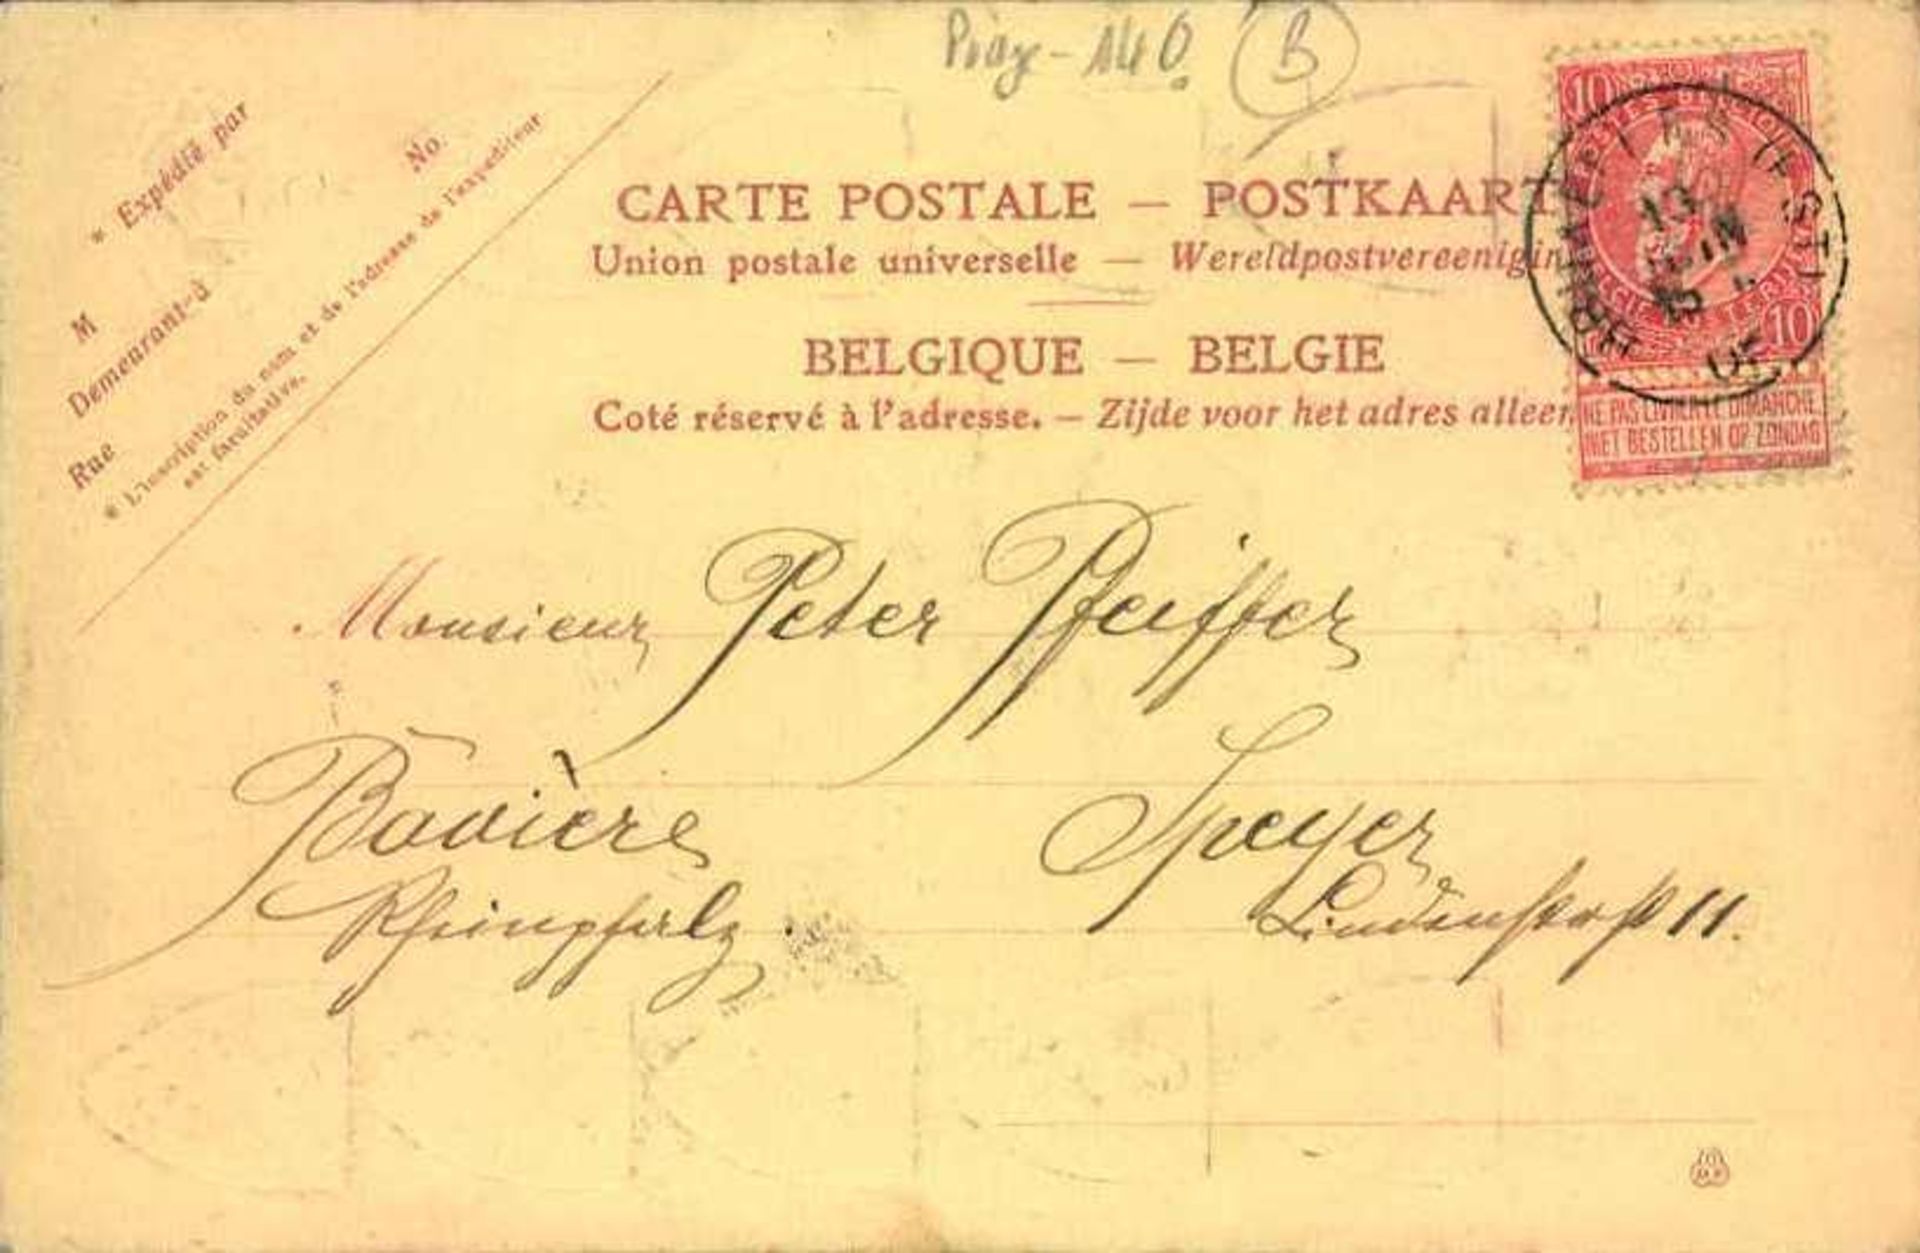 B
* Expédié par
No.
M
Demeurant à
Rue
* L'inscription du nom et de l'adresse de l'expéditeur
est facultative.
CARTE POSTALE — POSTKAART
Union postale universelle — Wereldpostvereenigin
BELGIQUE — BELGIE
Coté réservé à l'adresse. — Zijde voor het adres alleen
10
10
13 JUIN
NE PAS LIVRER LE DIMANCHE
NIET BESTELLEN OP ZONDAG
Monsieur Peter Pfeiffer
Bavière Speyer
Rheinpfalz. Lindenstraße 11.